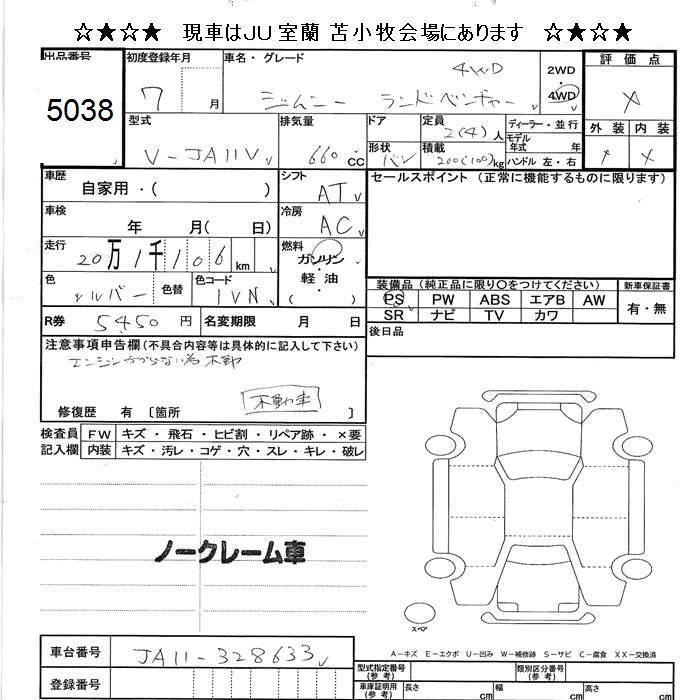 ☆★☆★ 現車はJU室蘭 苫小牧会場にあります ☆★☆★
出品番号 初度登録年月 車名・グレード 評価点
5038 7 月 ジムニー ランドベンチャー 4WD 2WD 4WD ✓ X
型式 排気量 ドア 定員 ディーラー・並行 外装 内装
V-JA11V ✓ 660 cc 2(4) 人 モデル年式 年 X X
形状 バン 積載 200(100) kg ハンドル 左・右
車歴 シフト セールスポイント (正常に機能するものに限ります)
自家用・( ) AT ✓
車検 冷房
年 月( 日) AC ✓
走行 燃料
20万1千106 km ガソリン・軽油 ( )
色 シルバー 色替 色コード 1VN
装備品 (純正品に限り〇をつけてください) 新車保証書
PS PW ABS エアB AW 有・無
SR ナビ TV カワ
R券 5450 円 名変期限 月 日
後日品
注意事項申告欄(不具合内容等は具体的に記入して下さい)
エンジンかからない為 不動
不動車
修復歴 有 〔箇所 〕
検査員 FW キズ・飛石・ヒビ割・リペア跡・×要
記入欄 内装 キズ・汚レ・コゲ・穴・スレ・キレ・破レ
ノークレーム車
スペア
A-キズ E-エクボ U-凹み W-補修跡 S-サビ C-腐食 XX-交換済
車台番号 JA11-328633 ✓
型式指定番号 (参考) 類別区分番号 (参考)
登録番号
車庫証明用 (参考) 長さ cm 幅 cm 高さ cm